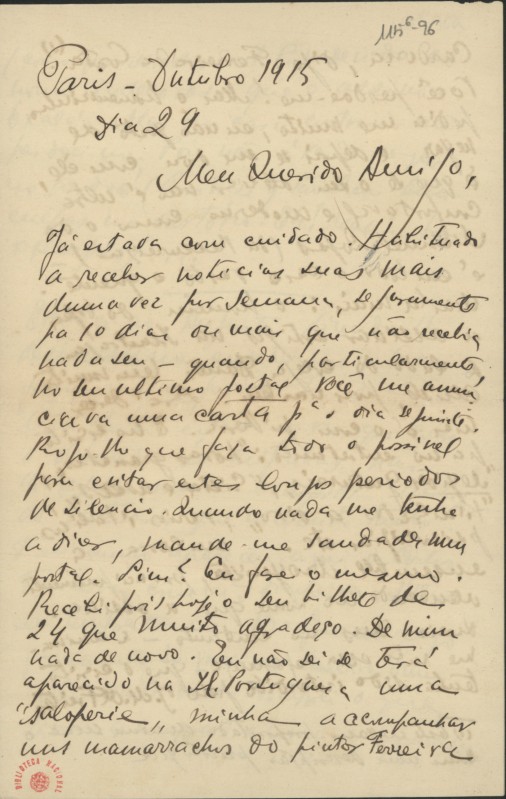 115⁶-96
Paris - Outubro 1915
Dia 29
Meu Querido Amigo,
Já estava com cuidado. Habituado
a receber noticias suas mais
duma vez por semana, seguramente
ha 10 dias ou mais que não recebia
nada seu - quando, particularmente
no seu ultimo postal Você me anun
ciava uma carta pª o dia seguinte.
Rogo-lho que faça todo o possivel
para evitar estes longos periodos
de silencio. Quando nada me tenha
a dizer, mande-me saudades num
postal. Sim? Eu faço o mesmo.
Recebi pois hoje o seu bilhete de
24 que muito agradeço. De mim
nada de novo. Eu não sei se terá
aparecido na Il. Portuguesa uma
"saloperie" minha a acompanhar
uns mamarrachos do pintor Ferreira
BIBLIOTECA NACIONAL